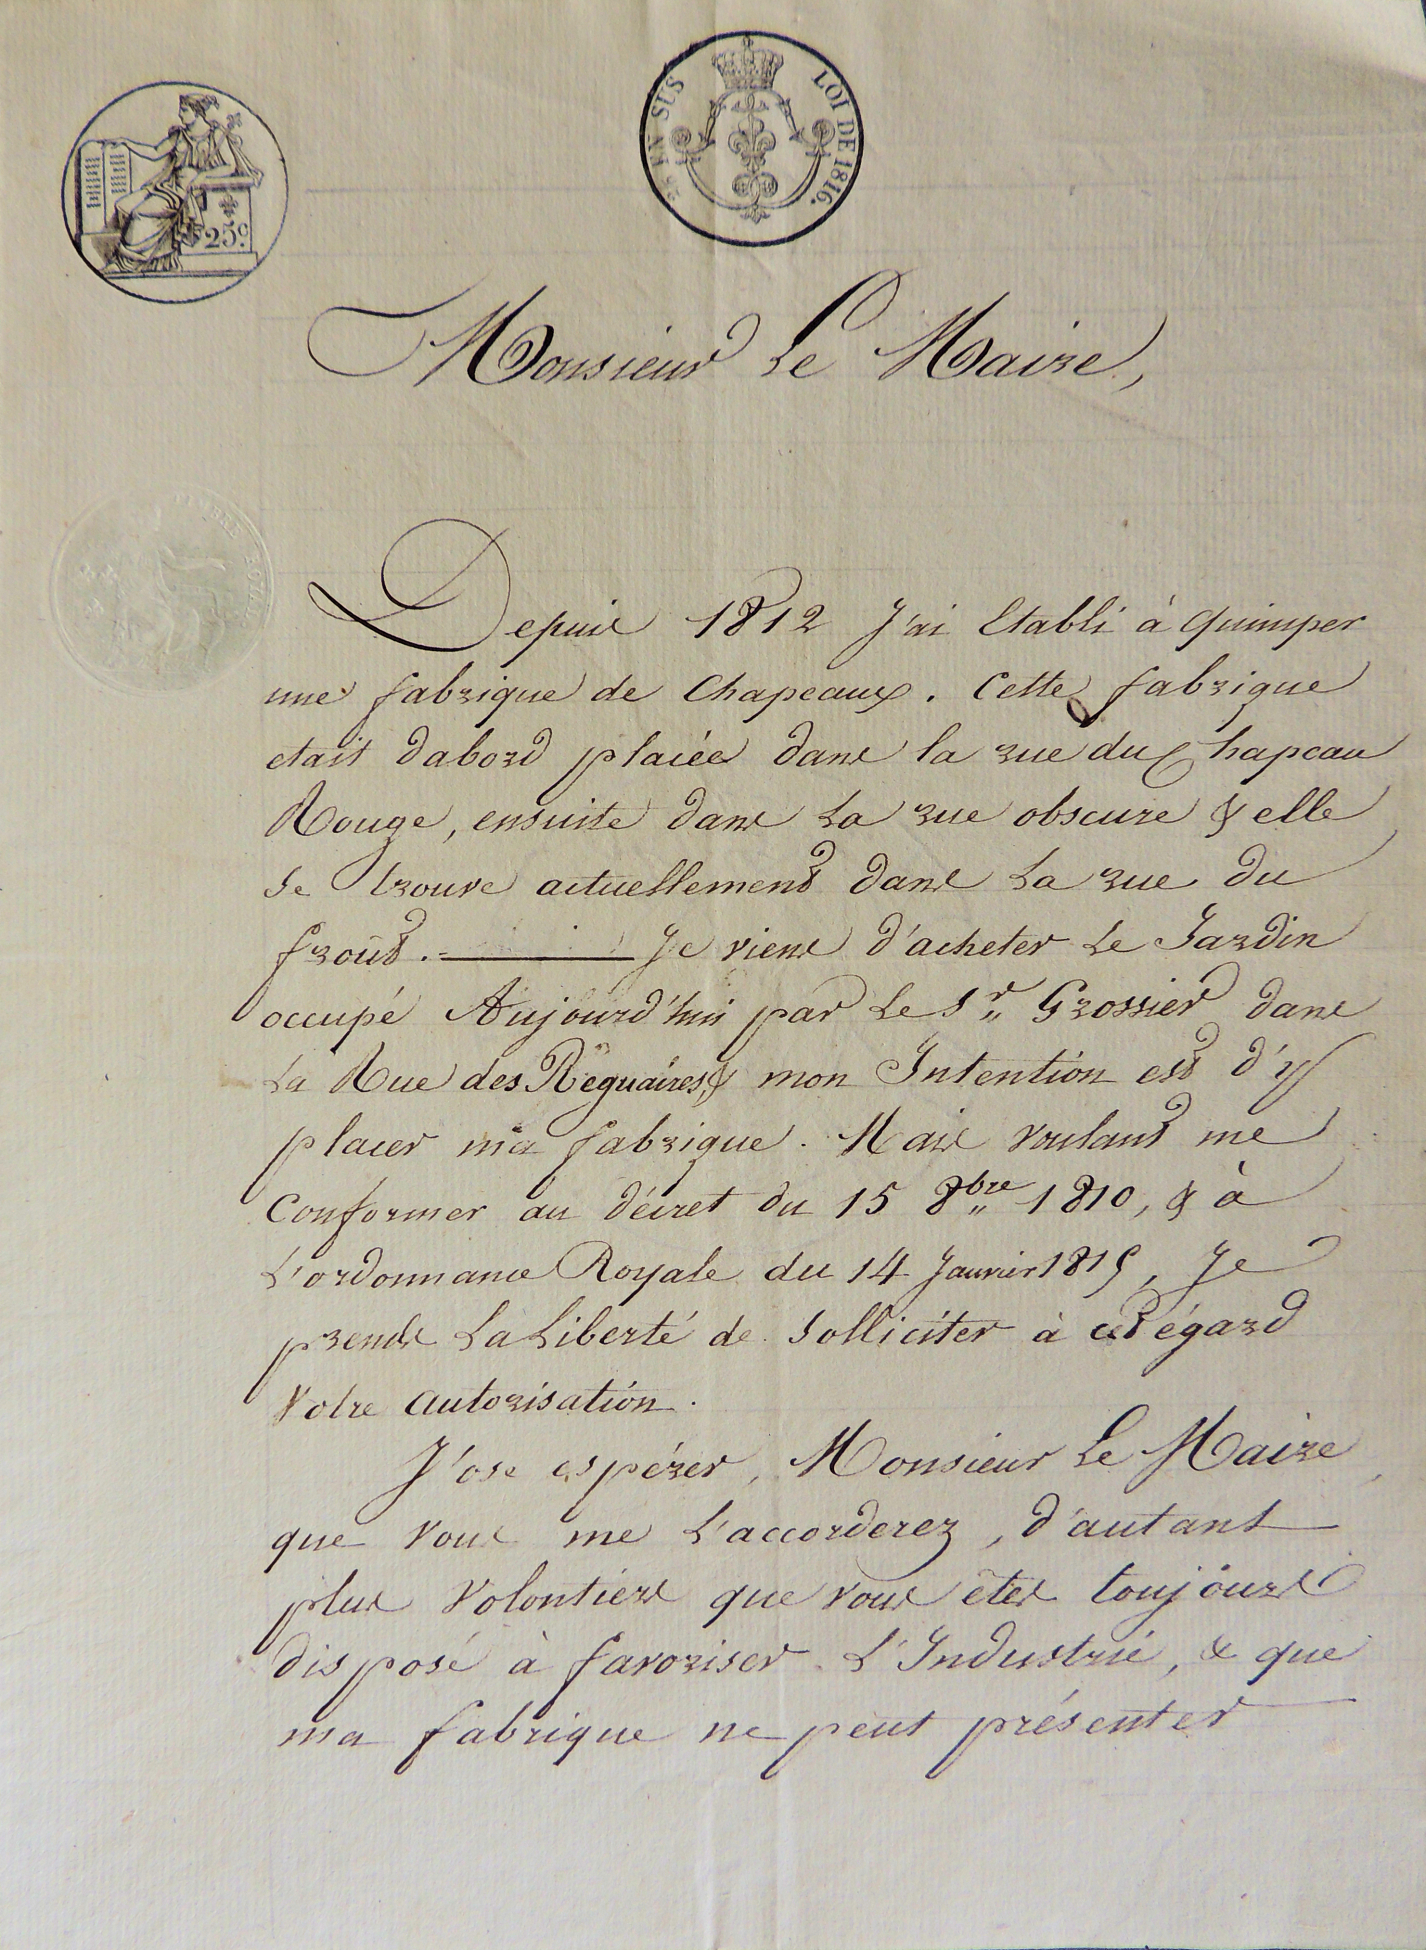 25 EN SUS
LOI DE 1816.
25 c.
Monsieur Le Maire,
TIMBRE ROYAL
Depuis 1812 J'ai Etabli à Quimper
une fabrique de Chapeaux. Cette fabrique
etait dabord placée dans la rue du Chapeau
Rouge, ensuite dans La rue obscure & elle
se trouve actuellement dans La rue du
frout. — Je viens d'acheter Le Jardin
occupé Aujourd'hui par Le Sr. Grossier dans
La Rue des Reguaires, & mon Intention est d'y
placer ma fabrique. Mais voulant me
Conformer au décret du 15 8bre 1810, & à
L'ordonnance Royale du 14 Janvier 1815, Je
prends La Liberté de Solliciter à cet égard
Votre autorisation.
J'ose espérer, Monsieur Le Maire,
que vous me L'accorderez, d'autant
plus Volontiers que vous êtes toujours
disposé à favoriser L'Industrie, & que
ma fabrique ne peut présenter